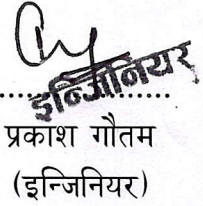 इन्जिनियर
....................
प्रकाश गौतम
(इन्जिनियर)